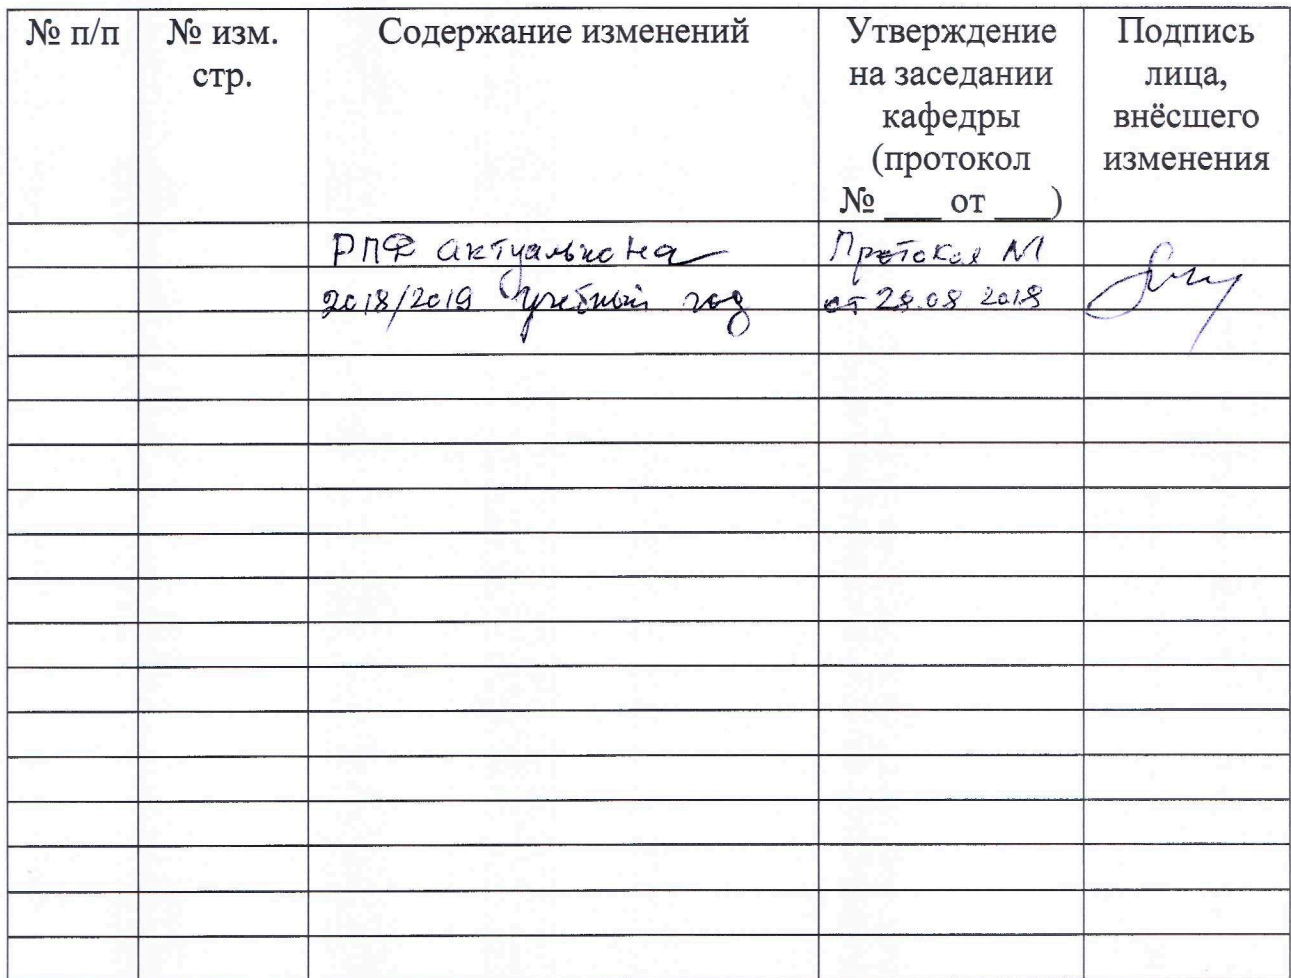 № п/п № изм. стр. Содержание изменений Утверждение на заседании кафедры (протокол № ____ от ____) Подпись лица, внёсшего изменения
РПФ актуальна на Протокол №1
2018/2019 учебный год от 28.08 2018